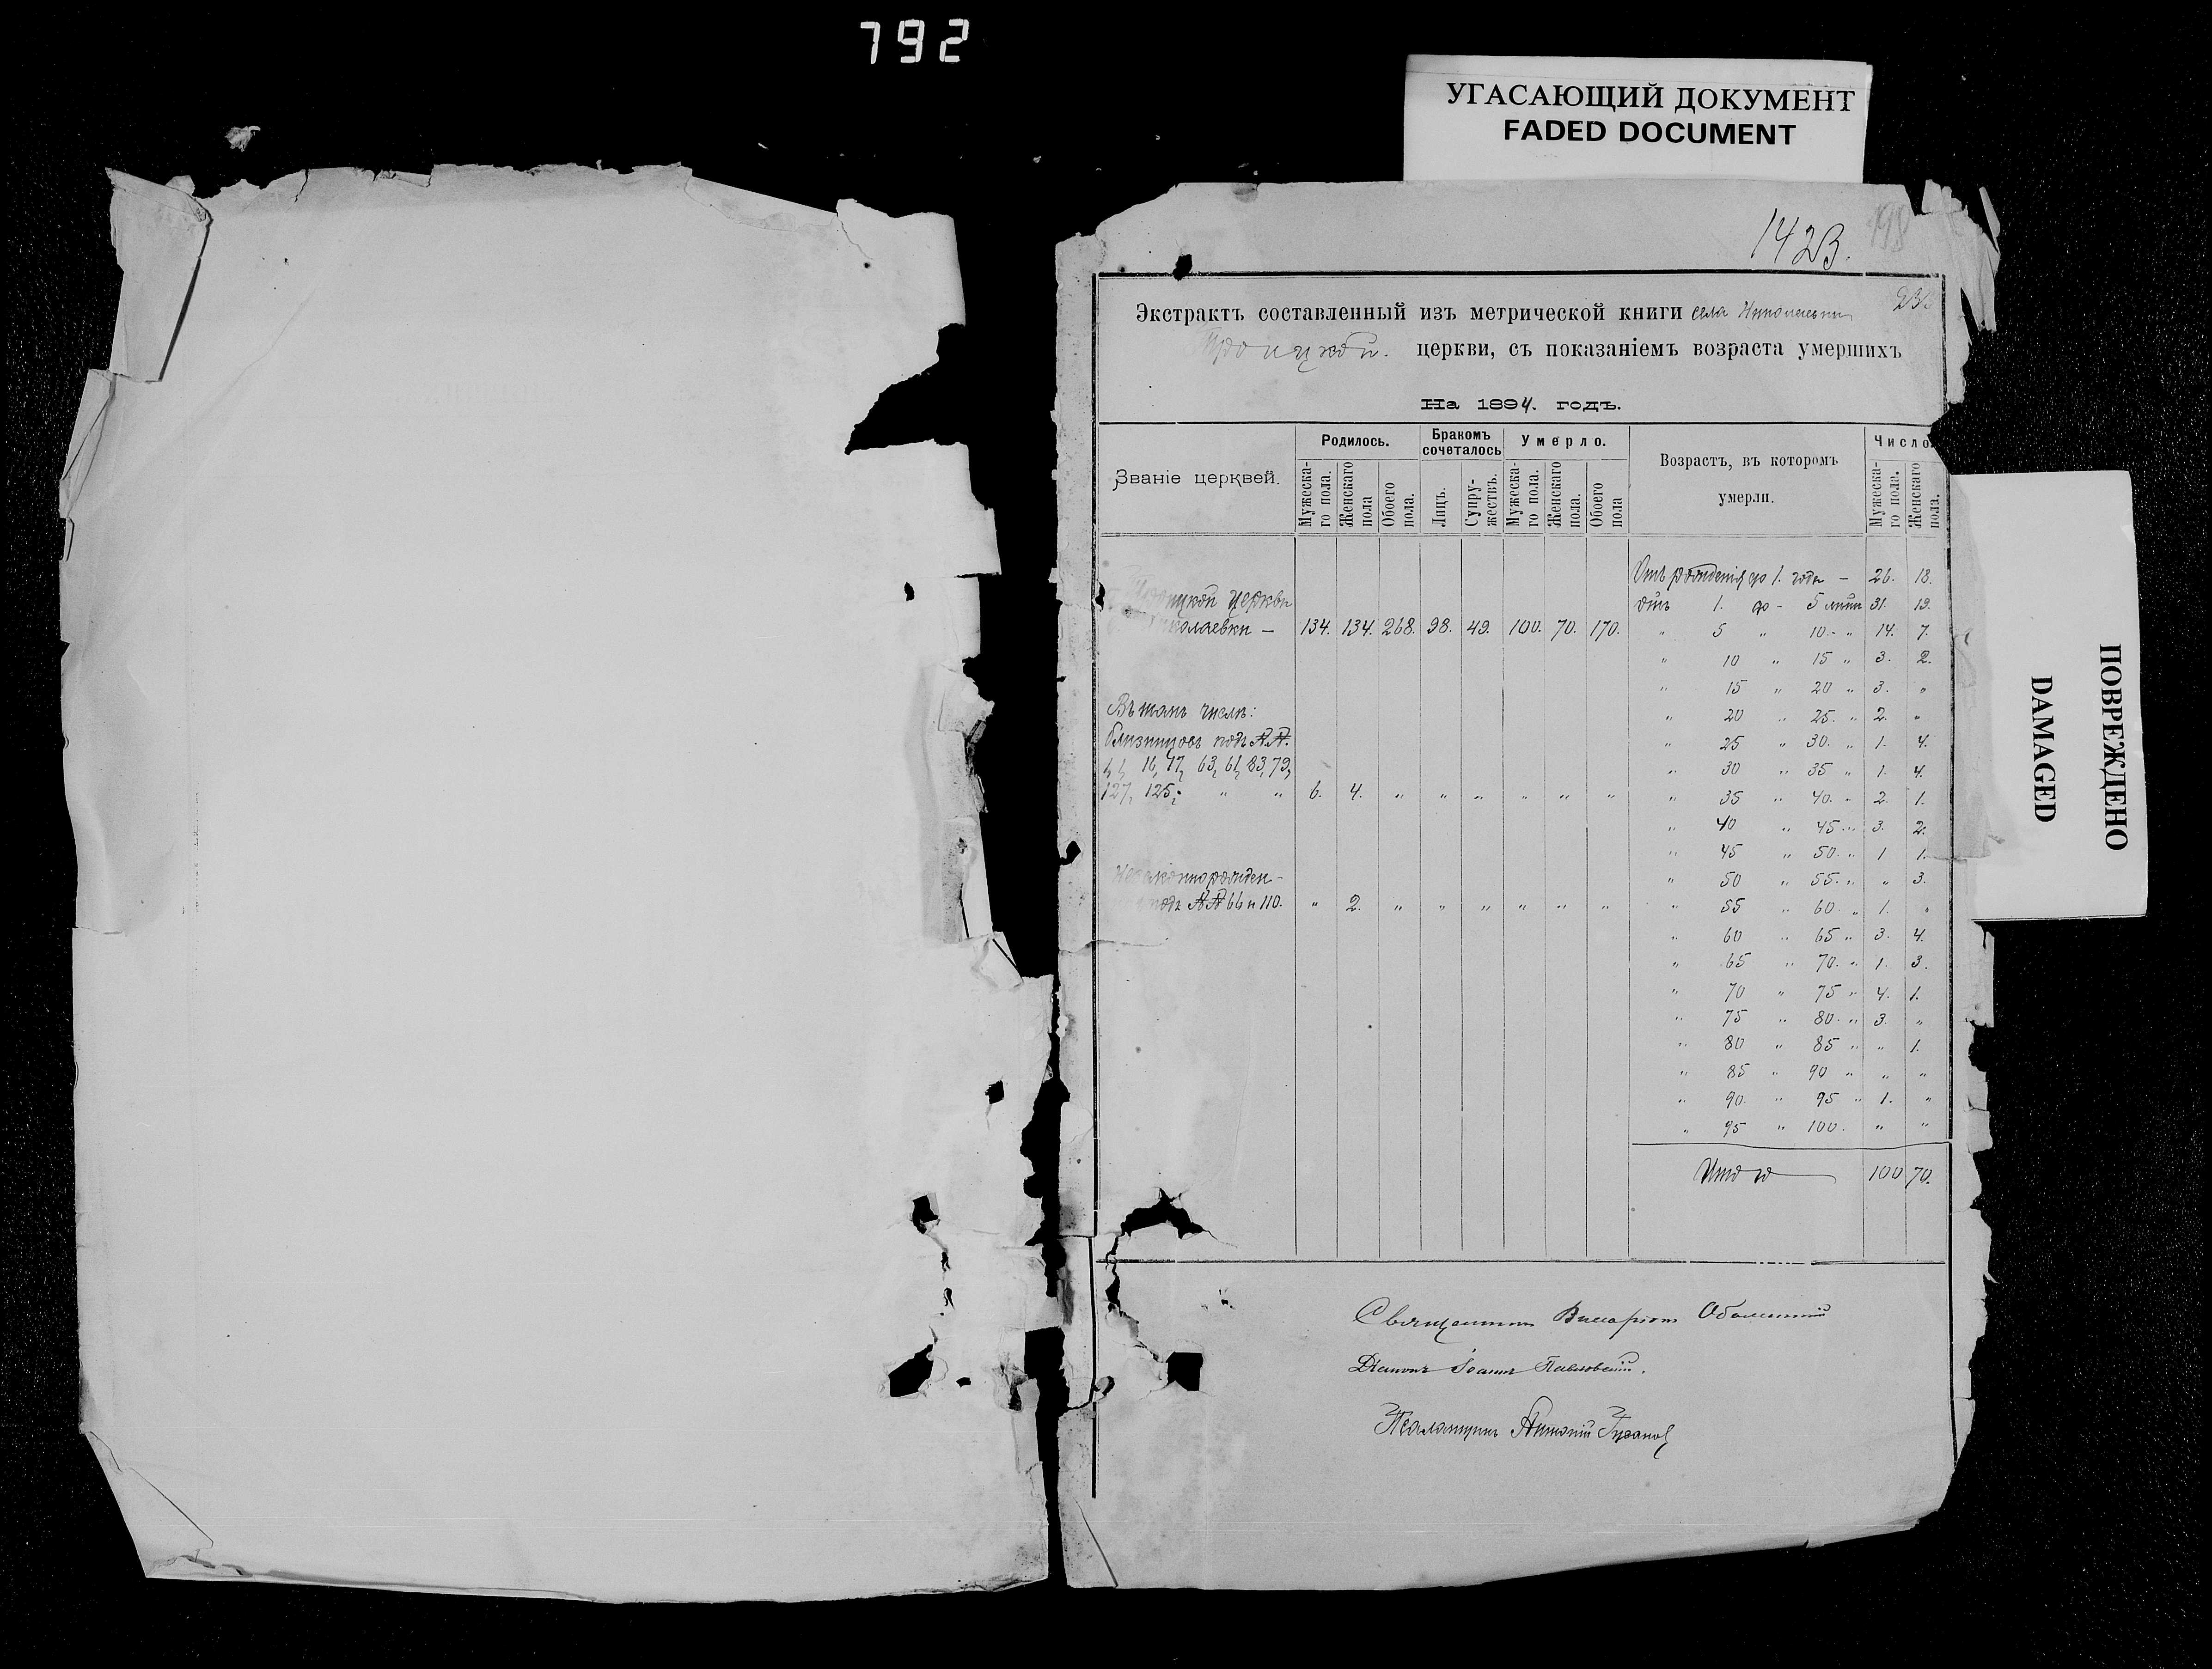 792
УГАСАЮЩИЙ ДОКУМЕНТ
FADED DOCUMENT
198
142В.
Экстрактъ составленный изъ метрической книги села Николаевки
Троицкой. церкви, съ показаніемъ возраста умершихъ
На 1894. годъ.
Званіе церквей.
Родилось.
Мужеска-го пола.
Женскаго пола
Обоего пола.
Бракомъ сочеталось
Лицъ.
Супру-жествъ.
Умерло.
Мужеска-го пола.
Женскаго пола.
Обоего пола
Возрастъ, въ которомъ умерли.
Число
Мужеска-го пола.
Женскаго пола.
Троицкой церкви
Николаевки — 134. 134. 268. 98. 49. 100. 70. 170.
Въ томъ числѣ:
близнецовъ подъ №№.
16, 17, 63, 64, 83, 79,
127, 125; " " 6. 4. " " " " " "
Незаконнорожден-
подъ №№ 66 и 110. " 2. " " " " " "
Отъ рожденія до 1. года — 26. 18.
отъ 1. до - 5 лѣтъ 31. 19.
" 5 " 10. - " 14. 7.
" 10 " 15 " 3. 2.
" 15 " 20 " 3. "
" 20 " 25. " 2. "
" 25 " 30. " 1. 4.
" 30 " 35 " 1. 4.
" 35 " 40. " 2. 1.
" 40 " 45 " 3. 2.
" 45 " 50. " 1 1.
" 50 " 55. " " 3.
" 55 " 60. " 1. "
" 60 " 65 " 3. 4.
" 65 " 70. " 1. 3.
" 70 " 75 " 4. 1.
" 75 " 80. " 3. "
" 80 " 85 " " 1.
" 85 " 90 " " "
" 90. " 95 " 1. "
" 95 " 100. " "
Итого 100 70.
Священникъ Виссаріонъ
Діаконъ Іоаннъ Павловскій.
Псаломщикъ Антоній
ПОВРЕЖДЕНО
DAMAGED